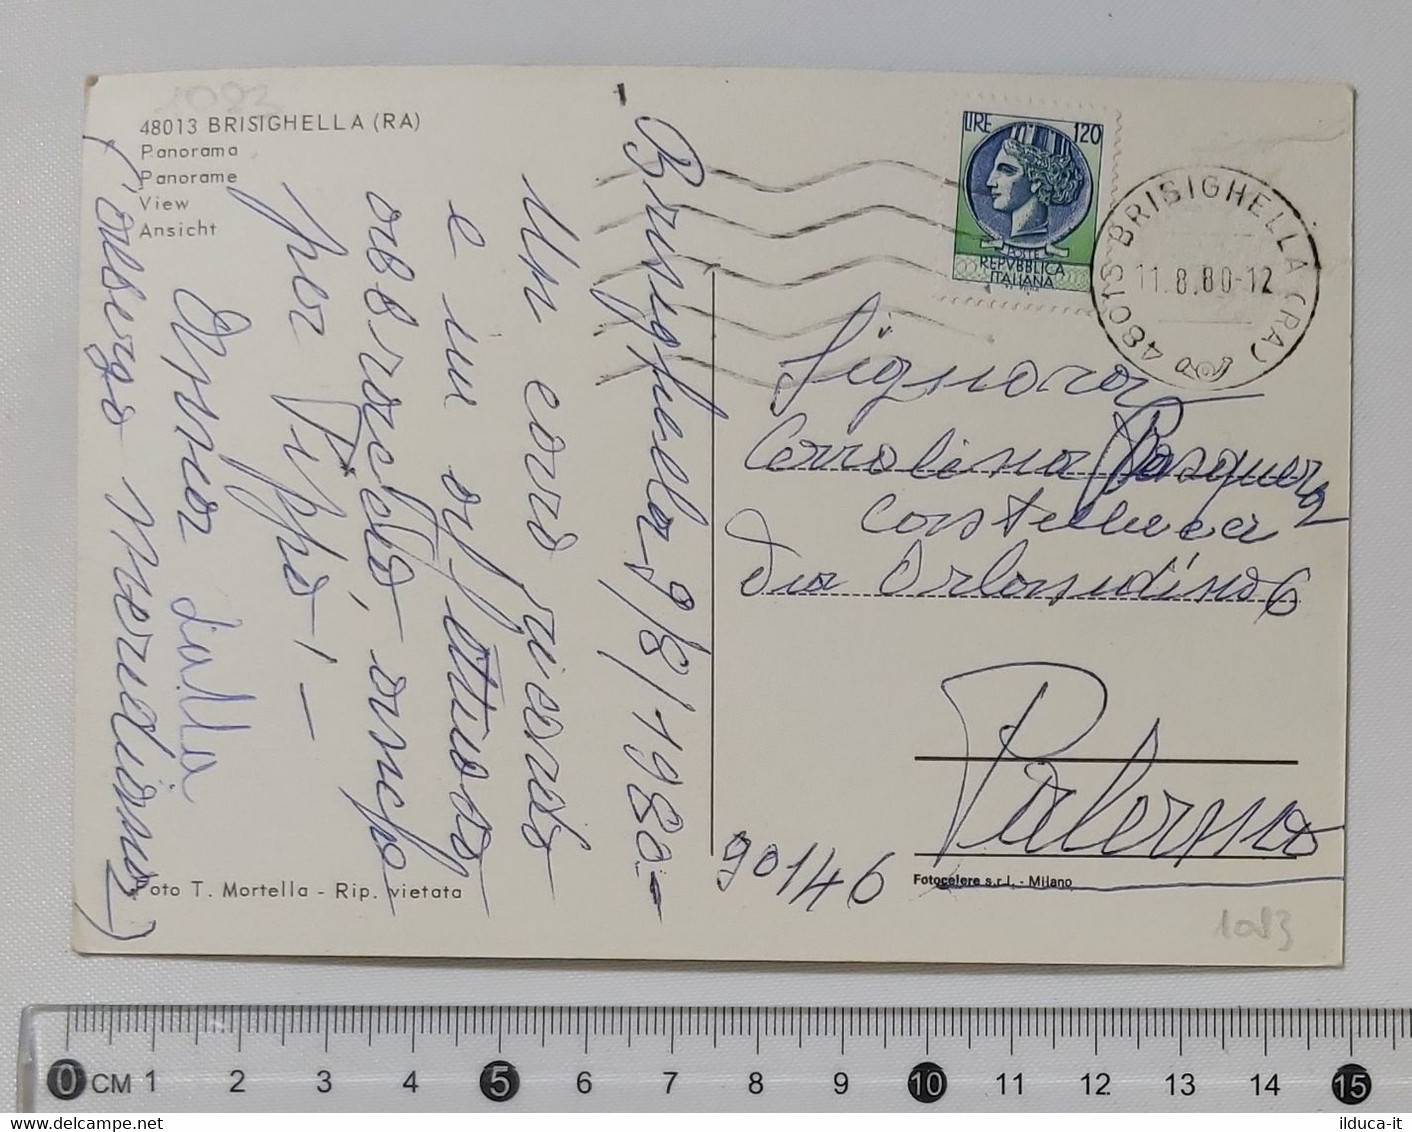 1093
48013 BRISIGHELLA (RA)
Panorama
Panorame
View
Ansicht
Brisighella 9/8/1980 -
Un caro pensiero
e un affettuoso
abbraccio, anche
per Pippo! -
Anna Lalla
(Albergo Meridiana)
Foto T. Mortella - Rip. vietata
LIRE 120
POSTE
REPVBBLICA
ITALIANA
48013 BRISIGHELLA (RA)
11.8.80-12
Signora
Carolina Pasqua
Castelluccia
Via Orlandino 6
Palermo
90146
Fotocelere s.r.l. - Milano
1093
0 CM 1 2 3 4 5 6 7 8 9 10 11 12 13 14 15
ilduca-it